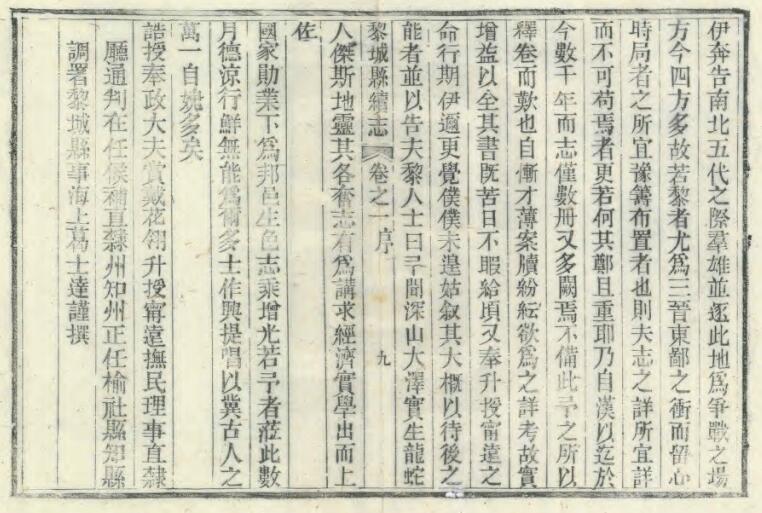 伊奔告南北五代之際羣雄並逐此地爲爭戰之場
方今四方多故若黎者尤爲三晉東鄙之衝而留心
時局者之所宜豫籌布置者也則夫志之詳所宜詳
而不可苟焉者更若何其鄭且重耶乃自漢以迄於
今數千年而志僅數册又多闕焉不備此予之所以
釋卷而歎也自慚才薄案牘紛紜欲爲之詳考故實
增益以全其書旣苦日不暇給頃又奉升授甯遠之
命行期伊邇更覺僕僕未遑姑叙其大槪以待後之
能者並以告夫黎人士曰予聞深山大澤實生龍蛇
黎城縣續志 卷之一 序 九
人傑斯地靈其各奮志有爲講求經濟實學出而上
佐
國家勛業下爲邦邑生色志乘增光若予者蒞此數
月德涼行鮮無能爲爾多士作興提唱以冀古人之
萬一自媿多矣
誥授奉政大夫賞戴花翎升授甯遠撫民理事直隸
廳通判在任候補直隸州知州正任榆社縣知縣
調署黎城縣事海上葛士達謹撰